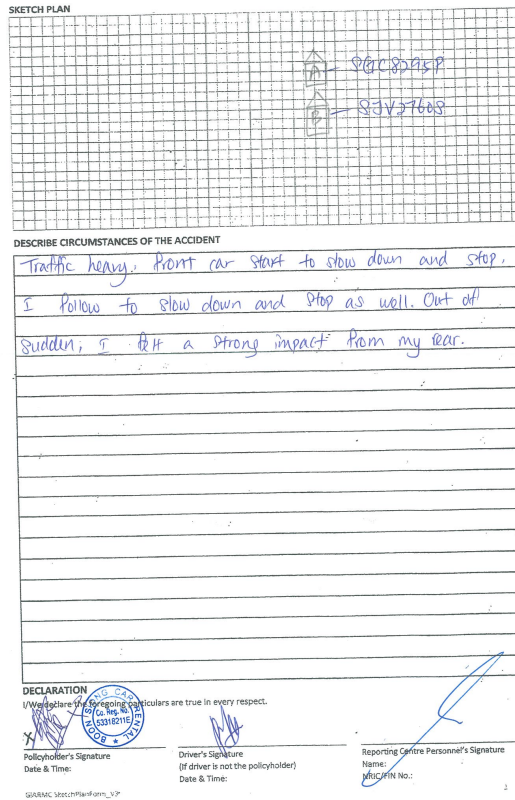 SKETCH PLAN
A
SGC8295P
B
SJV2760S
DESCRIBE CIRCUMSTANCES OF THE ACCIDENT
Traffic heavy, front car start to slow down and stop,
I follow to slow down and stop as well. Out of
sudden, I felt a strong impact from my rear.
DECLARATION
I/We declare the foregoing particulars are true in every respect.
BOON SIONG CAR RENTAL
Co. Reg. No.
53318211E
Policyholder's Signature
Date & Time:
Driver's Signature
(If driver is not the policyholder)
Date & Time:
Reporting Centre Personnel's Signature
Name:
NRIC/FIN No.:
GIARMC SketchPlanForm_V3
2